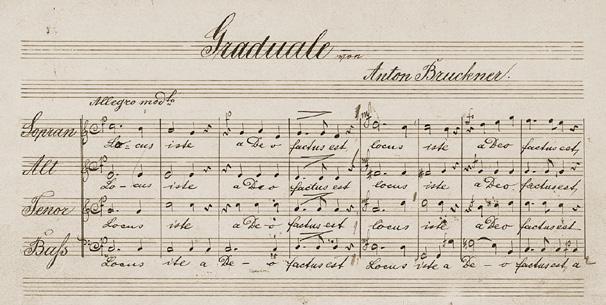 Graduale von
Anton Bruckner.
Allegro modto
Sopran
Lo-cus iste a Deo factus est, locus iste a Deo factus est,
Alt
Lo-cus iste a Deo factus est locus iste a Deo factus est,
Tenor
Locus iste a Deo factus est locus iste a Deo factus est
Baſs
Locus iste a De-o factus est Locus iste a De-o factus est, a